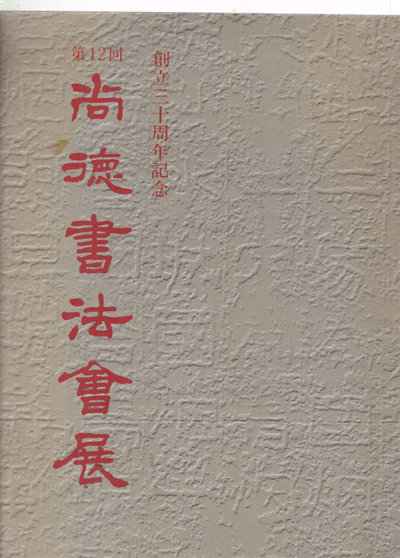 創立三十周年記念
第12回
尚德書法會展